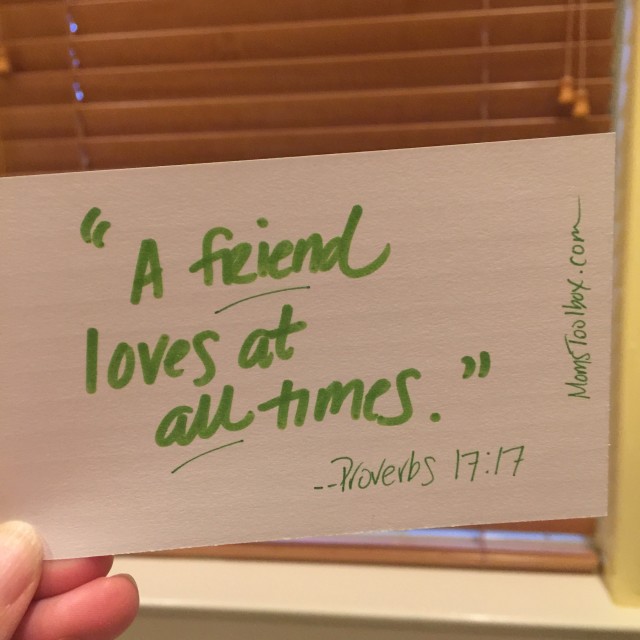 “A friend
loves at
all times.”
--Proverbs 17:17
MomsToolbox.com